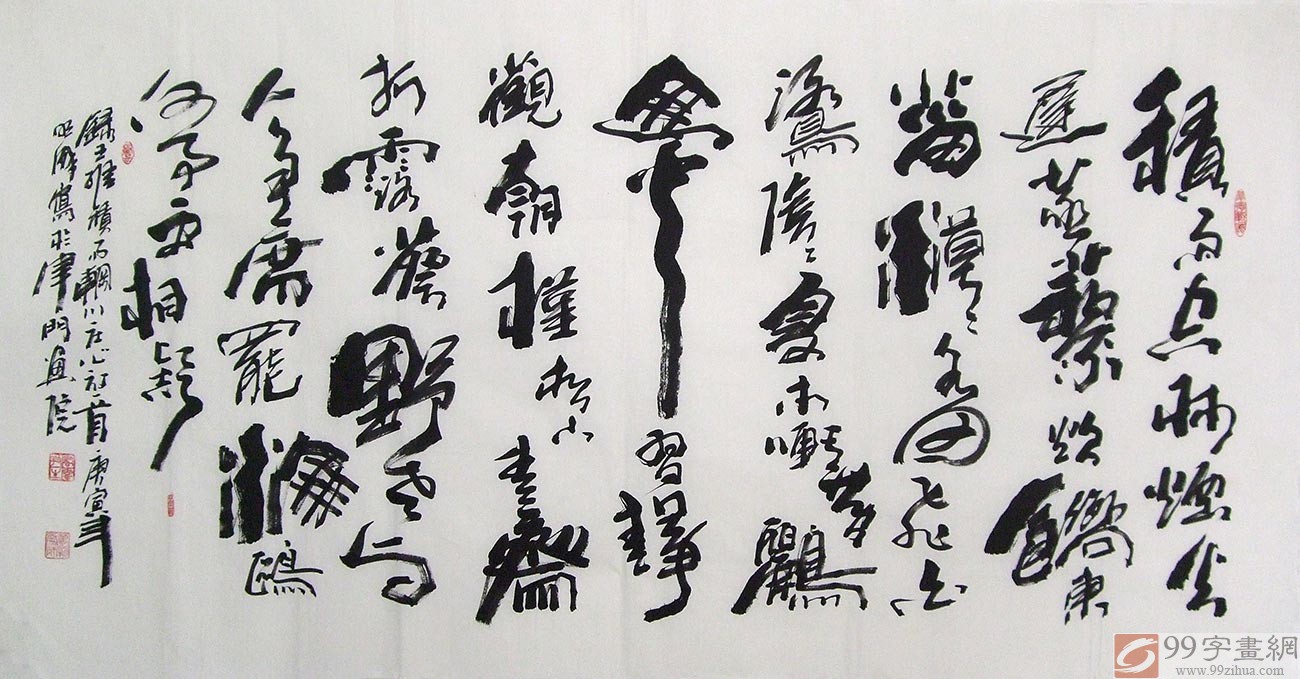 積雨空林煙火
遲蒸藜炊餉東
菑漠漠水田飛白
鷺陰陰夏木囀黃鸝
山中習靜
觀朝槿松下清齋
折露葵野老與
人爭席罷海鷗
何事更相疑
錄王維積雨輞川庄一首庚寅年
寫於津門畫院
99字畫網
www.99zihua.com